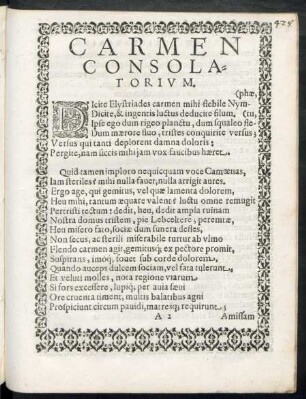 425
CARMEN
CONSOLA-
TORIVM.
(phæ,
DIcite Elysiriades carmen mihi flebile Nym-
Dicite, & ingentis luctus deducite filum, (tu,
Ipse ego dum rigeo planctu, dum squaleo fle-
Dum mærore fluo, tristes conquirite versus;
Versus qui tanti deplorent damna doloris;
Pergite, nam siccis mihi jam vox faucibus hæret.
Quid tamen imploro nequicquam voce Camœnas,
Iam steriles? mihi nulla favet, nulla arrigit aures.
Ergo age, qui gemitus, vel quæ lamenta dolorem,
Heu mihi, tantum æquare valent? luctu omne remugit
Perristi tectum: dedit, heu, dedit ampla ruinam
Nostra domus tristem, pie Lobcekere, peremtæ,
Heu misero fato, sociæ dum funera defles,
Non secus, ac sterili miserabile turtur ab vlmo
Flendo carmen agit, gemitusq; ex pectore promit,
Suspirans, imoq; fovet sub corde dolorem,
Quando auceps dulcem sociam, vel fata tulerunt.
Et veluti molles, nota regione viarum
Si fors excessere, lupiq; per avia sævi
Ore cruenta timent, multis balatibus agni
Prospiciunt circum pavidi, matresq; requirunt.
A 2 Amissam